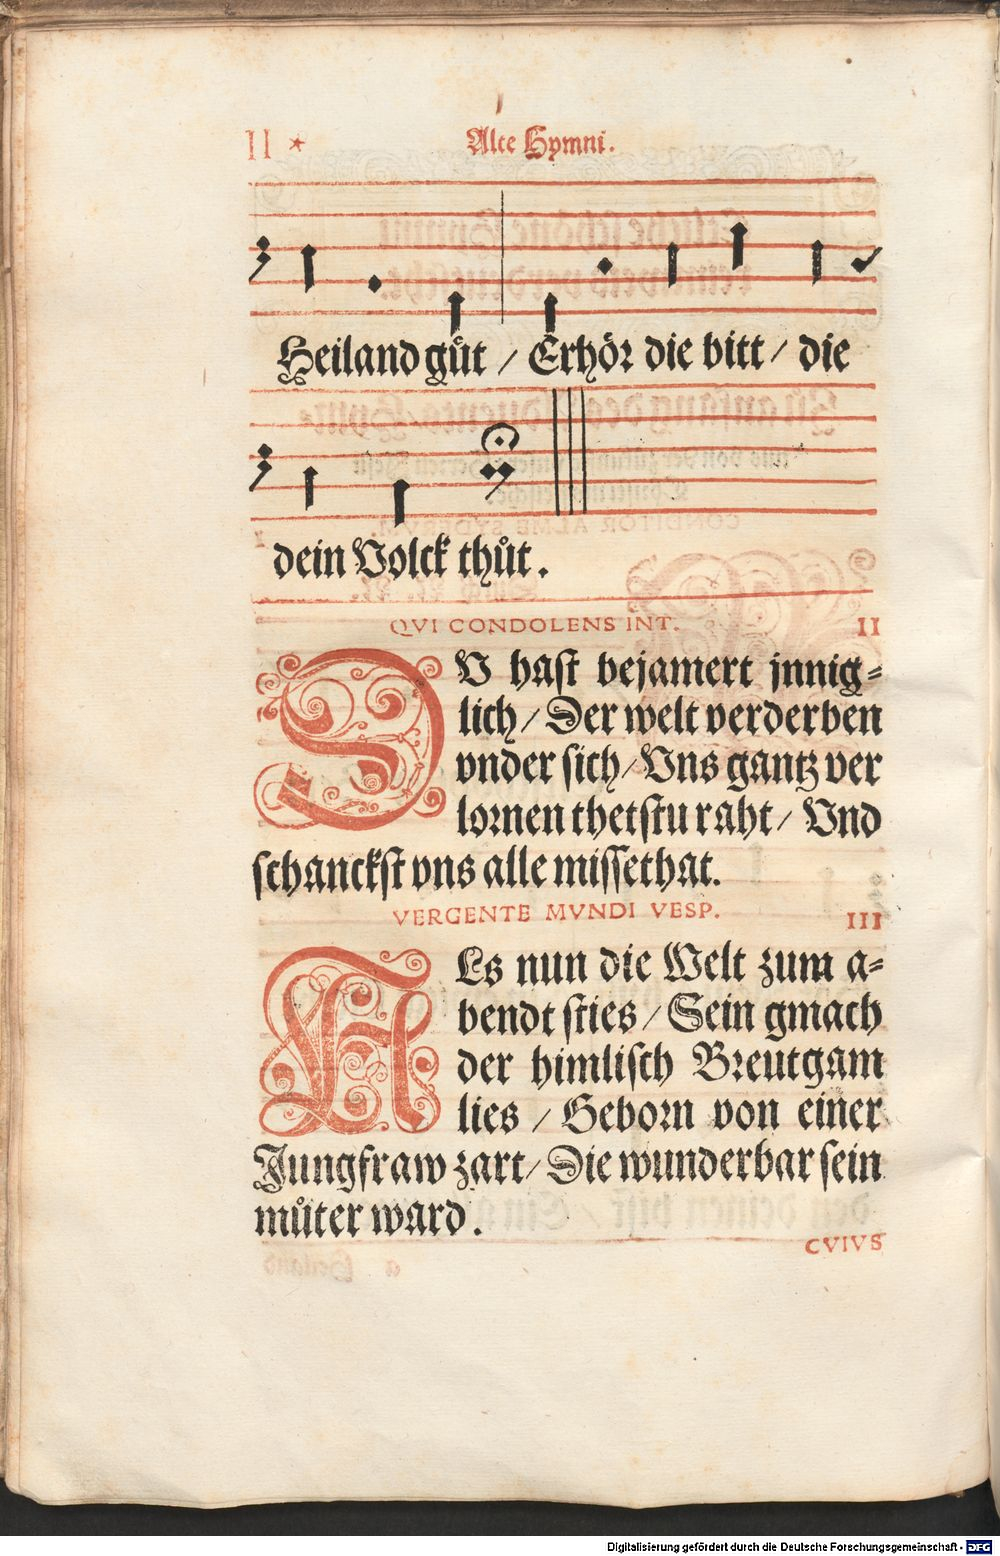 II *
Alte Hymni.
Heiland gůt / Erhör die bitt / die
dein Volck thůt.
QVI CONDOLENS INT. II
DV hast bejamert jnnig=
lich / Der welt verderben
vnder sich / Vns gantz ver
lornen thetstu raht / Vnd
schanckst vns alle missethat.
VERGENTE MVNDI VESP. III
ALs nun die Welt zum a=
bendt sties / Sein gmach
der himlisch Breutgam
lies / Geborn von einer
Jungfraw zart / Die wunderbar sein
můter ward.
CVIVS
Digitalisierung gefördert durch die Deutsche Forschungsgemeinschaft - DFG